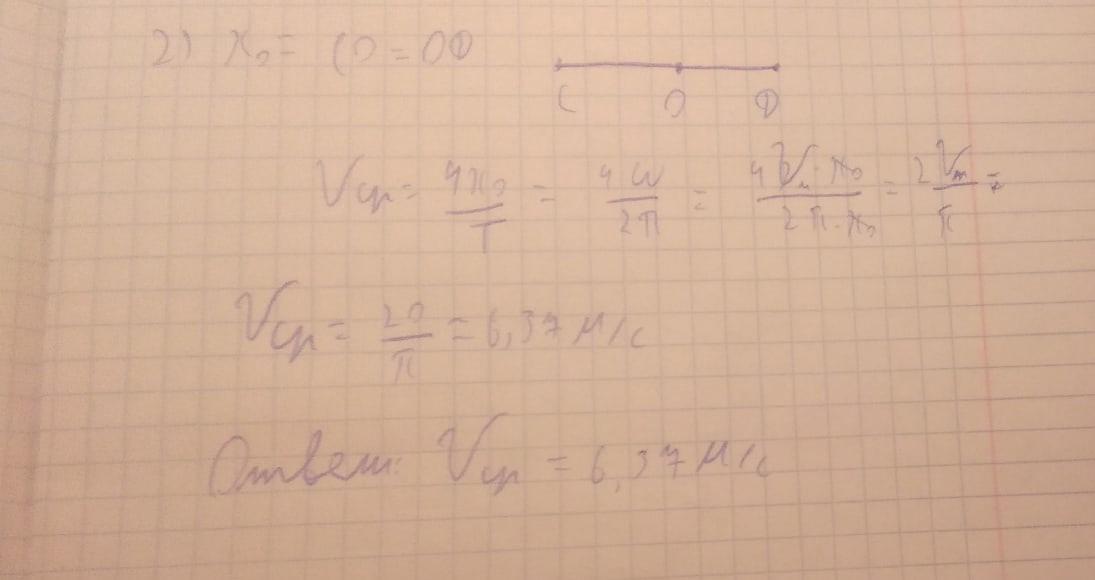 2) x₀ = CO = OD
C O D
Vср = 4x₀/T = 4ω/2π = 4Vₘ·x₀/2π·x₀ = 2Vₘ/π =
Vср = 20/π = 6,37 м/с
Ответ: Vср = 6,37 м/с